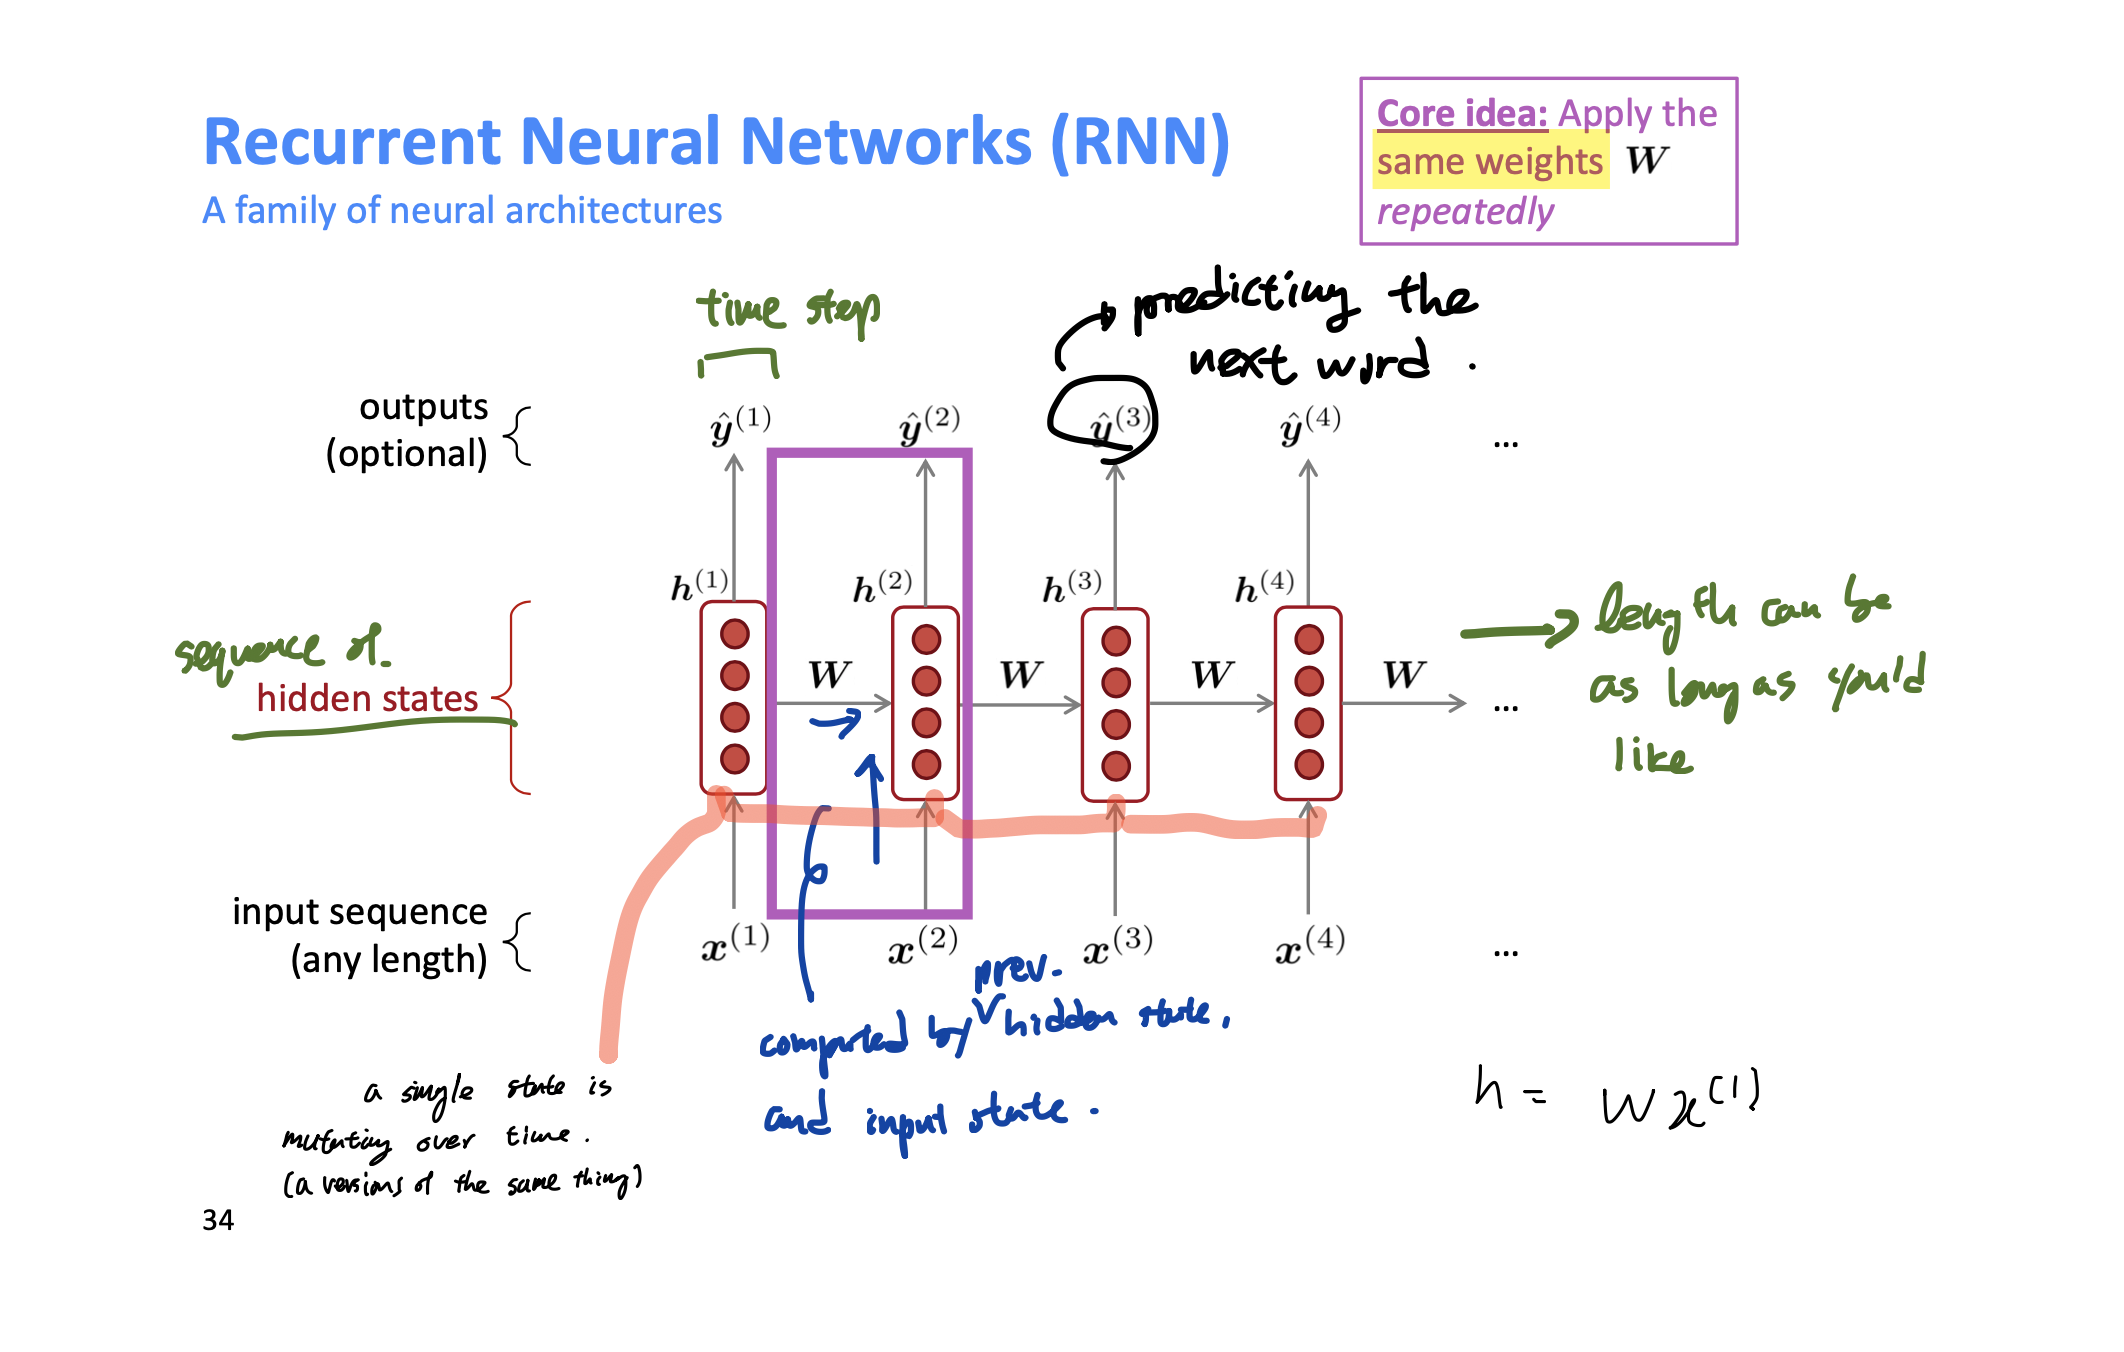 Recurrent Neural Networks (RNN)
A family of neural architectures
Core idea: Apply the
same weights W
repeatedly
time step
predicting the
next word.
outputs
(optional)
ŷ(1) ŷ(2) ŷ(3) ŷ(4) ...
h(1) h(2) h(3) h(4)
sequence of
hidden states
W W W W ...
length can be
as long as you'd
like
input sequence
(any length)
x(1) x(2) x(3) x(4) ...
prev.
computed by hidden state,
and input state.
a single state is
mutating over time.
(a versions of the same thing)
h = Wx(1)
34